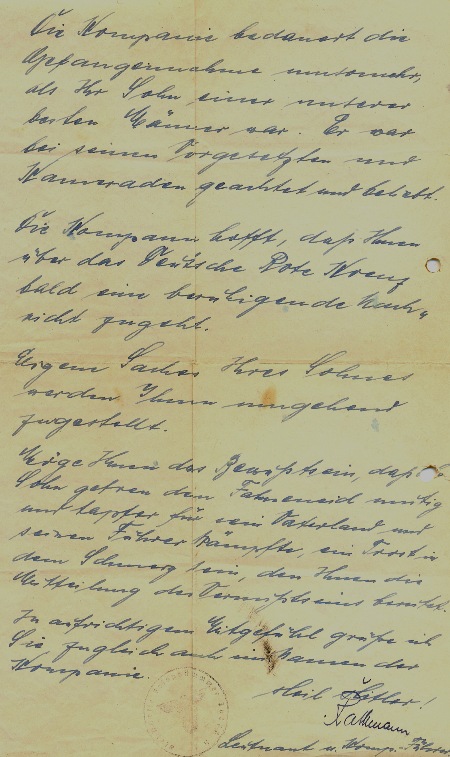 Die Kompanie bedauert die
Gefangennahme umsomehr,
als Ihr Sohn einer unserer
besten Männer war. Er war
bei seinen Vorgesetzten und
Kameraden geachtet und beliebt.
Die Kompanie hofft, daß Ihnen
über das Deutsche Rote Kreuz
bald eine beruhigende Nach-
richt zugeht.
Eigene Sachen Ihres Sohnes
werden Ihnen umgehend
zugestellt.
Möge Ihnen das Bewußtsein, daß Ihr
Sohn getreu dem Fahneneid mutig
und tapfer für sein Vaterland und
seinen Führer kämpfte, ein Trost in
dem Schmerz sein, den Ihnen die
Mitteilung des Vermißtseins bereitet.
In aufrichtigem Mitgefühl grüße ich
Sie, zugleich auch im Namen der
Kompanie.
Heil Hitler!
Leutnant u. Komp.-Führer